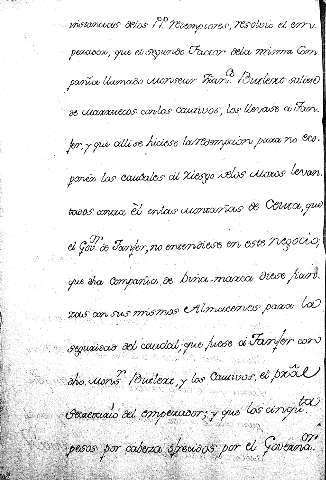 instancias de los P.P. redemptores, resolvio el em-
perador, que el segundo Factor de la misma Com-
pañia llamado Monsieur Fran.co Butlext saliese
de Marruecos con los cautivos, los llevase a Tan-
fer, y que alli se hiciese la redempcion para no ex-
poner los caudales al riesgo de los Moros levan-
tados contra él en las Montañas de Ceuta, que
el Gov.or de Tanfer, no entendiese en este negocio,
que dha Compañia, de Dina-marca diese fian-
zas con sus mismos Almacenes para la
seguridad del caudal, que fuese a Tanfer con
dho. Mons.r Butlext, y los Cautivos, el pral
Secretario del emperador; y que los cinqu.ta
pesos por cabeza ofrecidos por el Governa.or